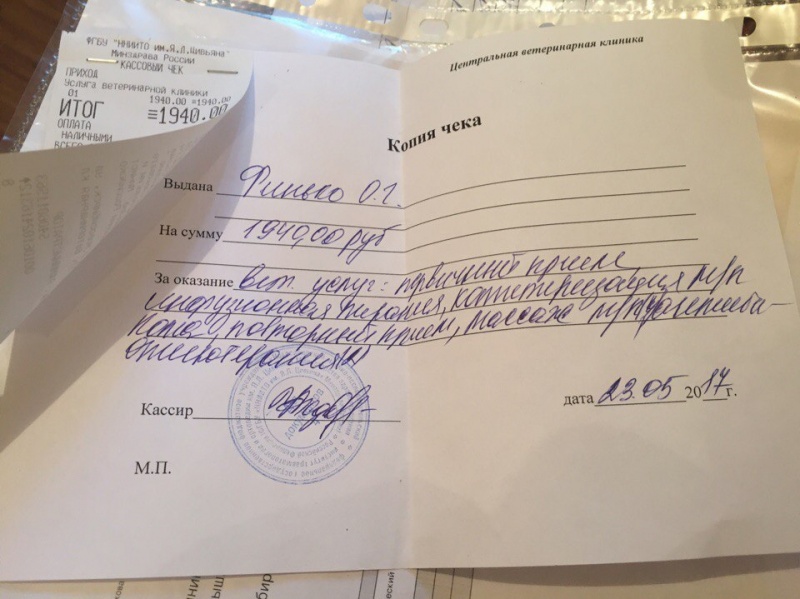 ФГБУ "ННИИТО им.Я.Л.Цивьяна"
Минздрава России
КАССОВЫЙ ЧЕК
ПРИХОД
Услуга ветеринарной клиники
01 1940.00 =1940.00
ИТОГ ≡1940.00
ОПЛАТА
НАЛИЧНЫМИ
ВСЕГО
Центральная ветеринарная клиника
Копия чека
Выдана Финько О.Г.
На сумму 1940,00 руб
За оказание вет. услуг: первичный прием
инфузионная терапия, катетеризация м/п
повторный прием, массаж м/п
Кассир
дата 23.05 2017 г.
М.П.